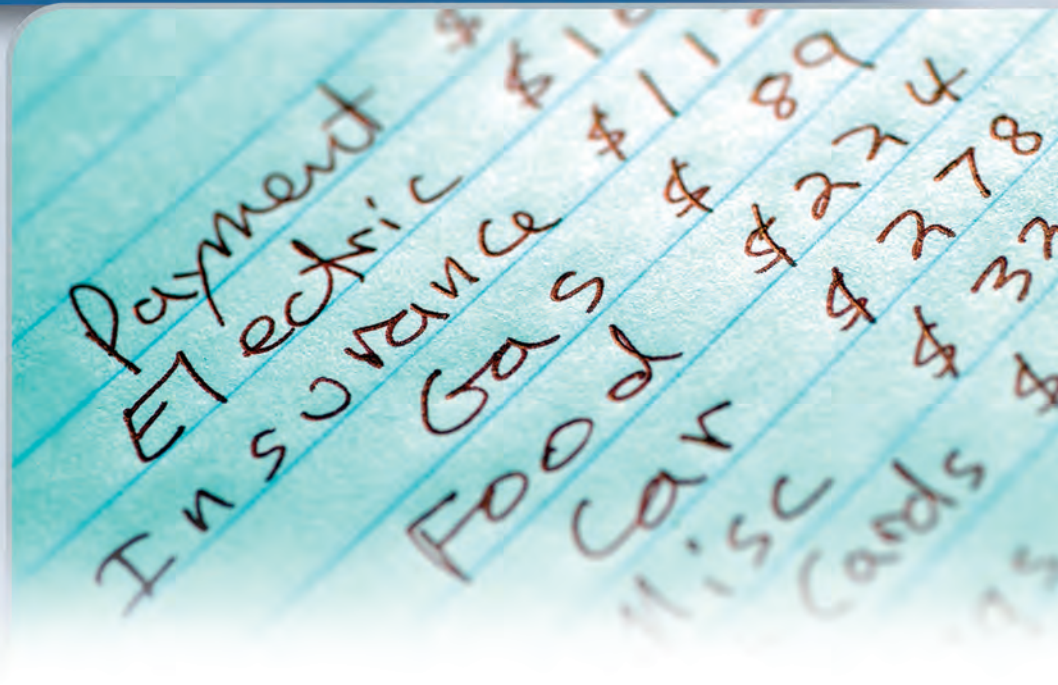 Payment $
Electric $1
Insurance $11
Gas $89
Food $224
Car $278
Misc $32
Cards $